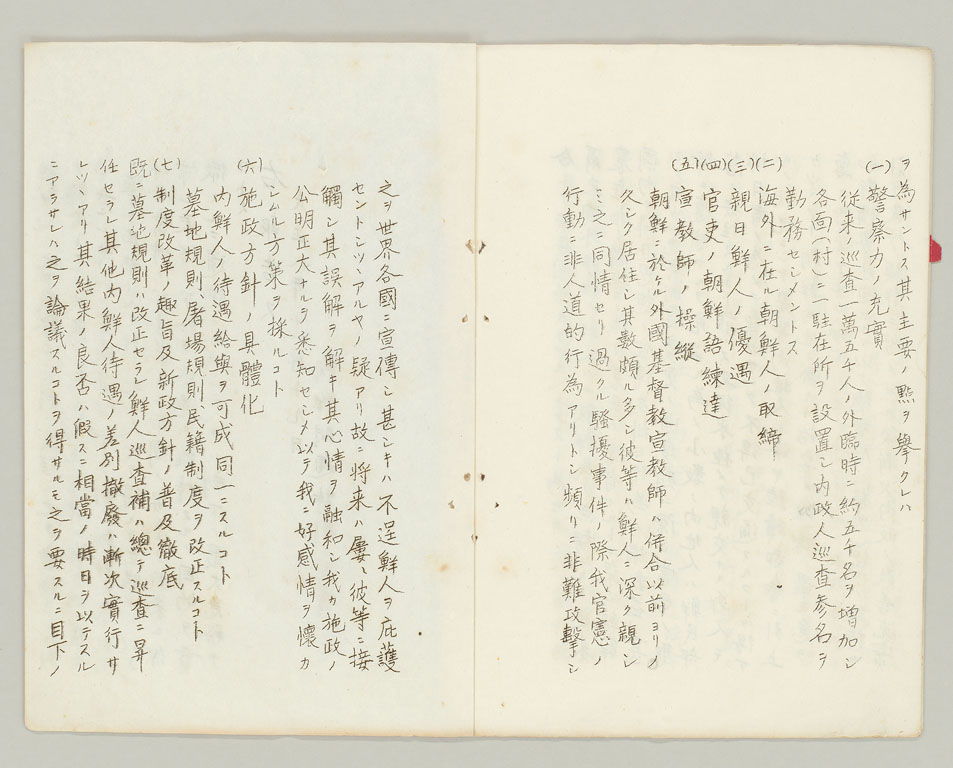 ヲ為サントス其主要ノ點ヲ擧クレハ
(一)警察力ノ充實
従来ノ巡査一萬五千人ノ外臨時ニ約五千名ヲ増加シ
各面(村)ニ駐在所ヲ設置シ内政人巡査参名ヲ
勤務セシメントス
(二)海外ニ在ル朝鮮人ノ取締
(三)親日鮮人ノ優遇
(四)官吏ノ朝鮮語練達
(五)宣教師ノ操縦
朝鮮ニ於ケル外國基督教宣教師ハ併合以前ヨリノ
久シク居住シ其數頗ル多シ彼等ハ鮮人ニ深ク親シ
ミ之ニ同情セリ過クル騒擾事件ノ際我官憲ノ
行動ニ非人道的行為アリトシ頻リニ非難攻擊シ
之ヲ世界各國ニ宣傳シ甚シキハ不逞鮮人ヲ庇護
セントシツヽアルヤノ疑アリ故ニ将来ハ屢々彼等ニ接
觸シ其誤解ヲ解キ其心情ヲ融和シ我カ施政ノ
公明正大ナルヲ悉知セシメ以テ我ニ好感情ヲ懐カ
シムル方策ヲ採ルコト
(六)施政方針ノ具體化
内鮮人ノ待遇給與ヲ可成同一ニスルコト
墓地規則、屠場規則、民籍制度ヲ改正スルコト
(七)制度改革ノ趣旨及新政方針ノ普及徹底
既ニ墓地規則ハ改正セラレ鮮人巡査補ハ總テ巡査ニ昇
任セラレ其他内鮮人待遇ノ差別撤廢ハ漸次實行サ
レツヽアリ其結果ノ良否ハ假スニ相當ノ時日ヲ以テスル
ニアラサレハ之ヲ論議スルコトヲ得サルモ之ヲ要スルニ目下ノ